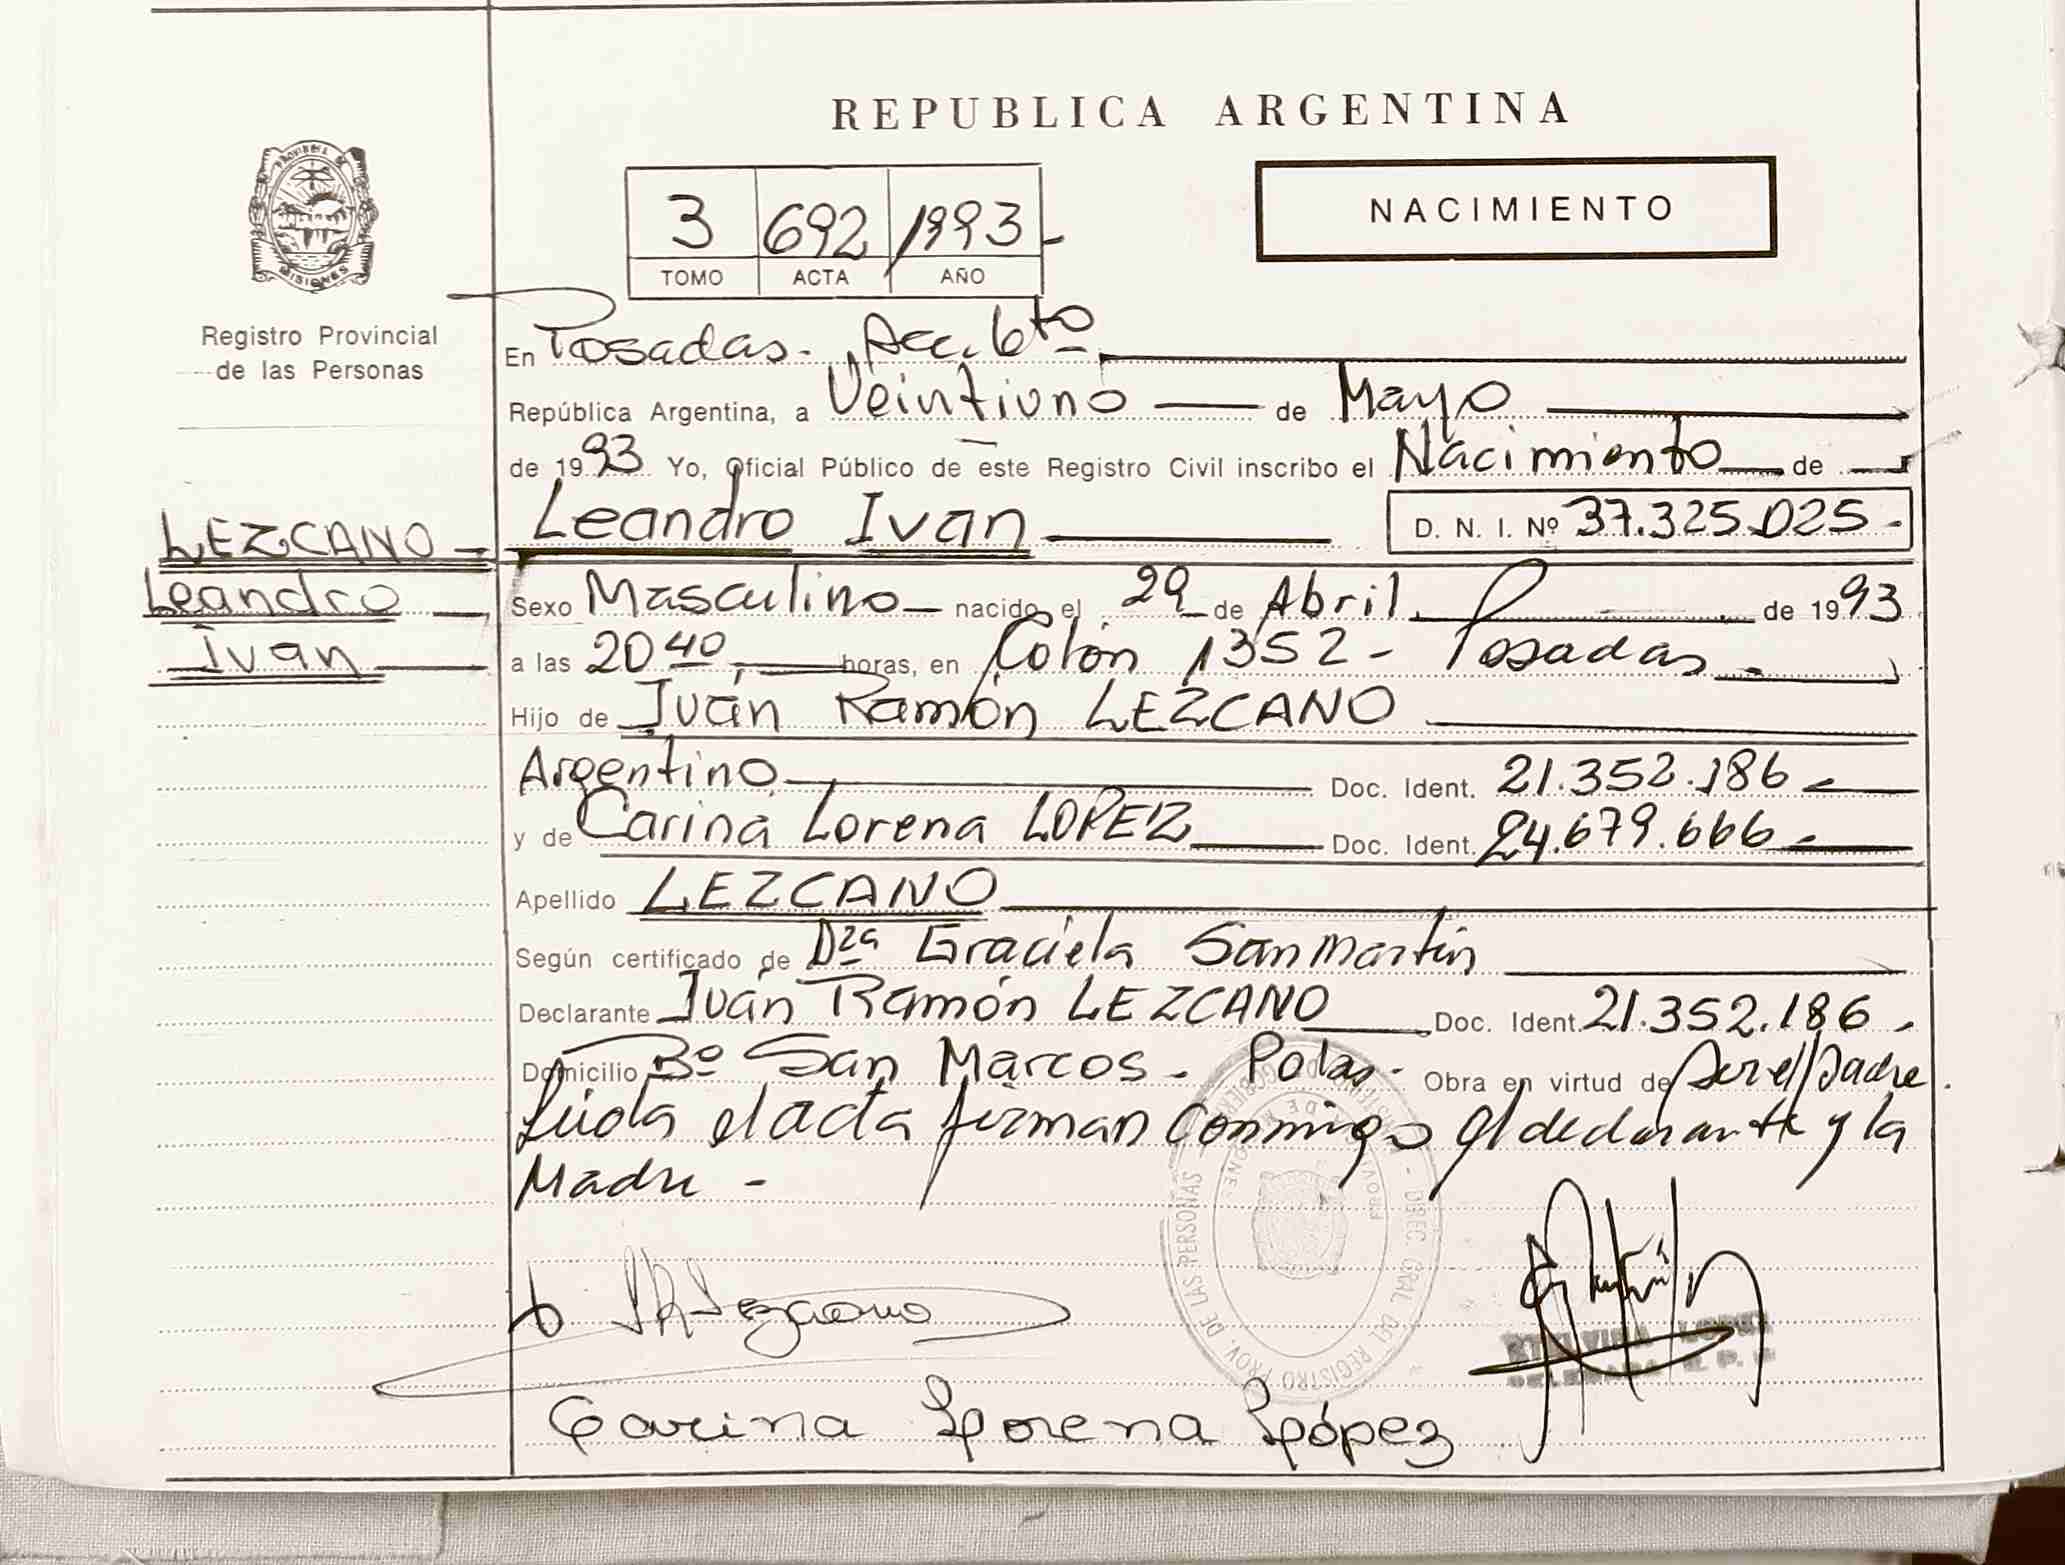 REPUBLICA ARGENTINA
PROVINCIA DE
MISIONES
Registro Provincial
de las Personas
3 692 1993-
TOMO ACTA AÑO
NACIMIENTO
En Posadas. Secc. 6to
República Argentina, a Veintiuno de Mayo
de 1993 Yo, Oficial Público de este Registro Civil inscribo el Nacimiento de
LEZCANO
Leandro
Ivan
Leandro Ivan D. N. I. Nº 37.325.025-
Sexo Masculino nacido el 29 de Abril de 1993
a las 20 40 horas, en Colón 1352 - Posadas
Hijo de Iván Ramón LEZCANO
Argentino Doc. Ident. 21.352.186
y de Carina Lorena LOPEZ Doc. Ident. 24.679.666
Apellido LEZCANO
Según certificado de Dra Graciela San Martín
Declarante Iván Ramón LEZCANO Doc. Ident. 21.352.186
Domicilio Bº San Marcos - Pdas. Obra en virtud de ser el padre.
Leida el acta firman conmigo el declarante y la
Madre -
DIREC. GRAL. DEL REGISTRO PROV. DE LAS PERSONAS
Lezcano
Carina Lorena López